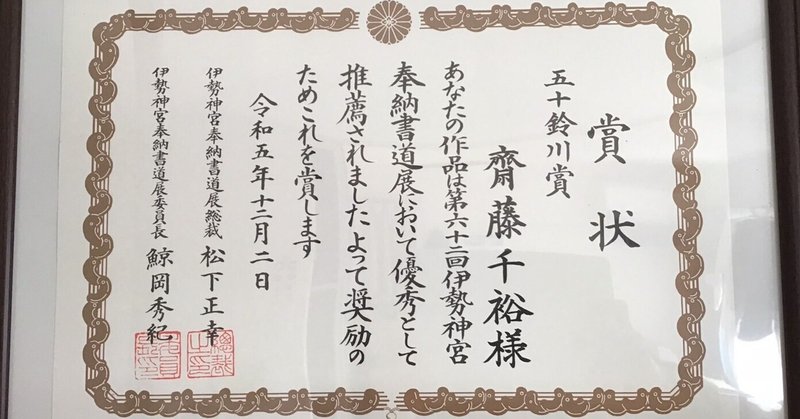 賞状
五十鈴川賞
齋藤千裕様
あなたの作品は第六十二回伊勢神宮
奉納書道展において優秀として
推薦されましたよって奨励の
ためこれを賞します
令和五年十二月二日
伊勢神宮奉納書道展総裁 松下正幸
伊勢神宮奉納書道展委員長 鯨岡秀紀